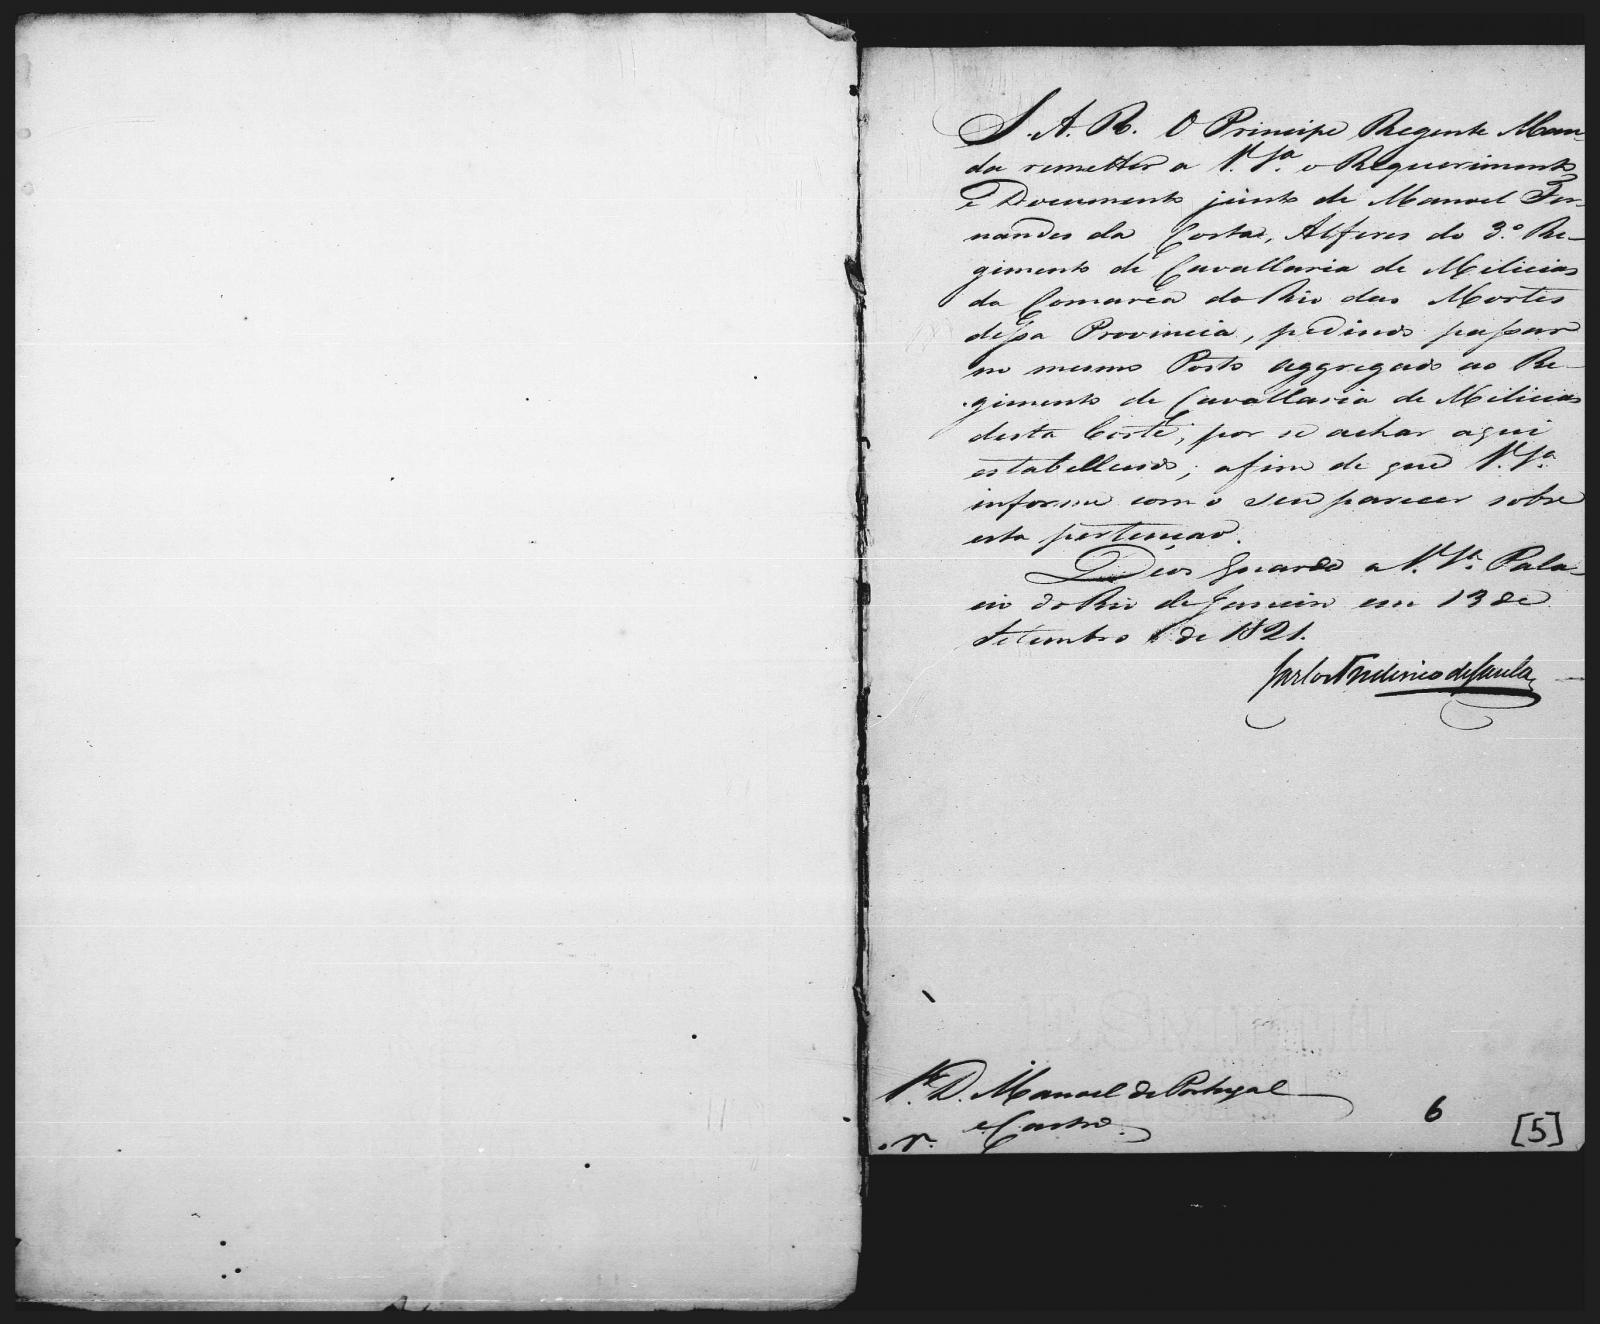 S. A. R. O Principe Regente Man-
da remetter a V. Sa. o Requerimento,
e Documento junto de Manoel Fer-
nandes da Costa, Alferes do 3.º Re-
gimento de Cavallaria de Milicias
da Comarca do Rio das Mortes
dessa Provincia, pedindo passar
no mesmo Posto aggregado ao Re-
gimento de Cavallaria de Milicias
desta Corte, por se achar aqui
estabellecido; afim de que V. Sa.
informe com o seu parecer sobre
esta pertenção.
Deos Guarde a V. Sa. Pala-
cio do Rio de Janeiro em 13 de
Setembro de 1821.
Carlos Frederico de Paula
Sr. D. Manoel de Portugal
e Castro.
6
[5]